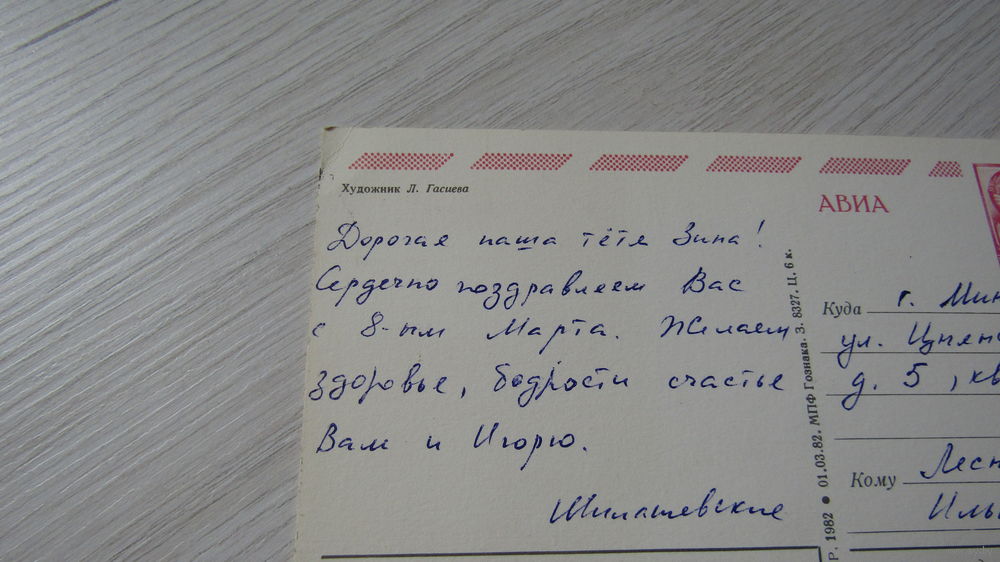 Художник Л. Гасиева
АВИА
Дорогая наша тётя Зина!
Сердечно поздравляем Вас
с 8-ым Марта. Желаем
здоровье, бодрости счастье
Вам и Игорю.
Шилашевские
Р. 1982 • 01.03.82. МПФ Гознака. З. 8327. Ц. 6 к.
Куда г. Мин
ул. Цнян
д. 5, кв
Кому Лесн
Иль